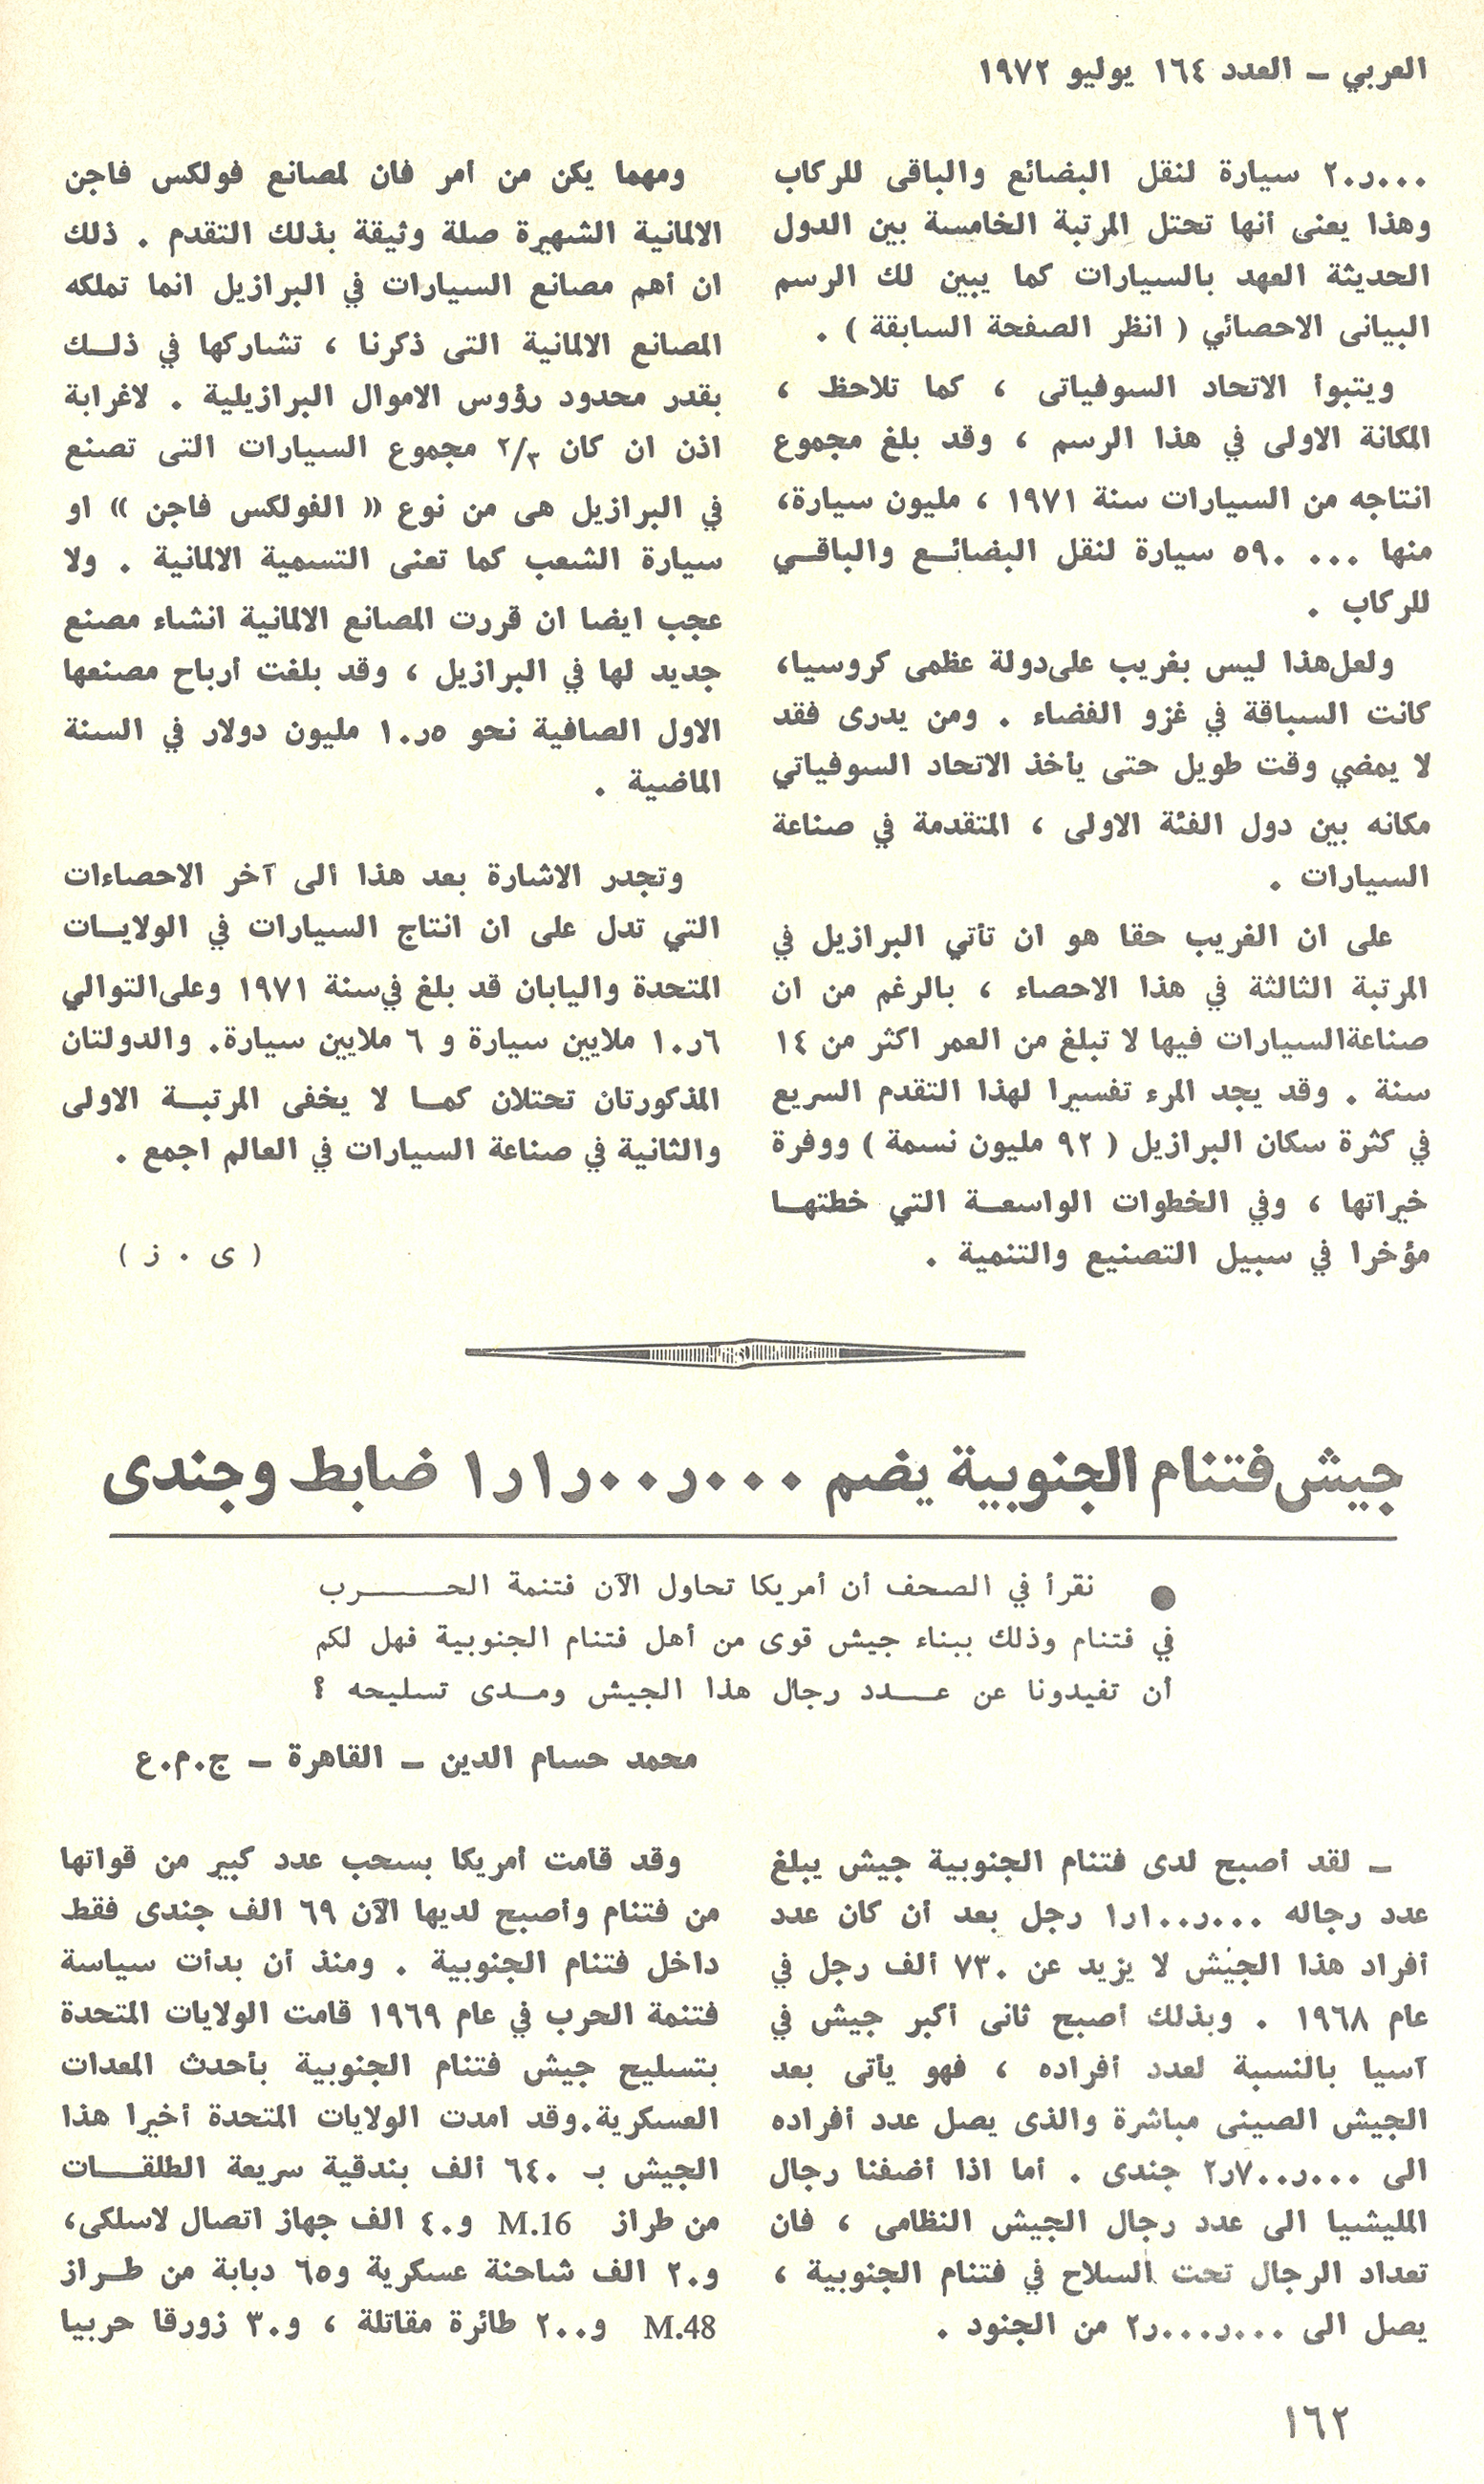 العربي ـ العدد ١٦٤ يوليو ١٩٧٢
٢٠ر٠٠٠ سيارة لنقل البضائع والباقى للركاب
وهذا يعنى أنها تحتل المرتبة الخامسة بين الدول
الحديثة العهد بالسيارات كما يبين لك الرسم
البيانى الاحصائي ( انظر الصفحة السابقة ) .
ويتبوأ الاتحاد السوفياتى ، كما تلاحظ ،
المكانة الاولى في هذا الرسم ، وقد بلغ مجموع
انتاجه من السيارات سنة ١٩٧١ ، مليون سيارة،
منها ٠٠٠ ٥٩٠ سيارة لنقل البضائع والباقي
للركاب .
ولعل هذا ليس بغريب على دولة عظمى كروسيا،
كانت السباقة في غزو الفضاء . ومن يدرى فقد
لا يمضي وقت طويل حتى يأخذ الاتحاد السوفياتي
مكانه بين دول الفئة الاولى ، المتقدمة في صناعة
السيارات .
على ان الغريب حقا هو ان تأتي البرازيل في
المرتبة الثالثة في هذا الاحصاء ، بالرغم من ان
صناعة السيارات فيها لا تبلغ من العمر اكثر من ١٤
سنة . وقد يجد المرء تفسيرا لهذا التقدم السريع
في كثرة سكان البرازيل ( ٩٢ مليون نسمة ) ووفرة
خيراتها ، وفي الخطوات الواسعة التي خطتها
مؤخرا في سبيل التصنيع والتنمية .
ومهما يكن من امر فان لمصانع فولكس فاجن
الالمانية الشهيرة صلة وثيقة بذلك التقدم . ذلك
ان أهم مصانع السيارات في البرازيل انما تملكه
المصانع الالمانية التى ذكرنا ، تشاركها في ذلك
بقدر محدود رؤوس الاموال البرازيلية . لاغرابة
اذن ان كان ٢/٣ مجموع السيارات التى تصنع
في البرازيل هى من نوع « الفولكس فاجن » او
سيارة الشعب كما تعنى التسمية الالمانية . ولا
عجب ايضا ان قررت المصانع الالمانية انشاء مصنع
جديد لها في البرازيل ، وقد بلغت أرباح مصنعها
الاول الصافية نحو ٥ر١٠ مليون دولار في السنة
الماضية .
وتجدر الاشارة بعد هذا الى آخر الاحصاءات
التي تدل على ان انتاج السيارات في الولايات
المتحدة واليابان قد بلغ في سنة ١٩٧١ وعلى التوالي
٦ر١٠ ملايين سيارة و ٦ ملايين سيارة. والدولتان
المذكورتان تحتلان كما لا يخفى المرتبة الاولى
والثانية في صناعة السيارات في العالم اجمع .
( ى . ز )
جيش فتنام الجنوبية يضم ١ر١٠٠ر٠٠٠ ضابط وجندى
● نقرأ في الصحف أن أمريكا تحاول الآن فتنمة الحرب
في فتنام وذلك ببناء جيش قوى من أهل فتنام الجنوبية فهل لكم
أن تفيدونا عن عدد رجال هذا الجيش ومدى تسليحه ؟
محمد حسام الدين ـ القاهرة ـ ج.م.ع
ـ لقد أصبح لدى فتنام الجنوبية جيش يبلغ
عدد رجاله ١ر١٠٠ر٠٠٠ رجل بعد أن كان عدد
أفراد هذا الجيش لا يزيد عن ٧٣٠ ألف رجل في
عام ١٩٦٨ . وبذلك أصبح ثانى أكبر جيش في
آسيا بالنسبة لعدد أفراده ، فهو يأتى بعد
الجيش الصينى مباشرة والذى يصل عدد أفراده
الى ٢ر٧٠٠ر٠٠٠ جندى . أما اذا أضفنا رجال
المليشيا الى عدد رجال الجيش النظامى ، فان
تعداد الرجال تحت السلاح في فتنام الجنوبية ،
يصل الى ٢ر٠٠٠ر٠٠٠ من الجنود .
وقد قامت أمريكا بسحب عدد كبير من قواتها
من فتنام وأصبح لديها الآن ٦٩ الف جندى فقط
داخل فتنام الجنوبية . ومنذ أن بدأت سياسة
فتنمة الحرب في عام ١٩٦٩ قامت الولايات المتحدة
بتسليح جيش فتنام الجنوبية بأحدث المعدات
العسكرية.وقد امدت الولايات المتحدة أخيرا هذا
الجيش بـ ٦٤٠ ألف بندقية سريعة الطلقات
من طراز M.16 و٤٠ الف جهاز اتصال لاسلكى،
و٢٠ الف شاحنة عسكرية و٦٥ دبابة من طراز
M.48 و٢٠٠ طائرة مقاتلة ، و٣٠ زورقا حربيا
١٦٢